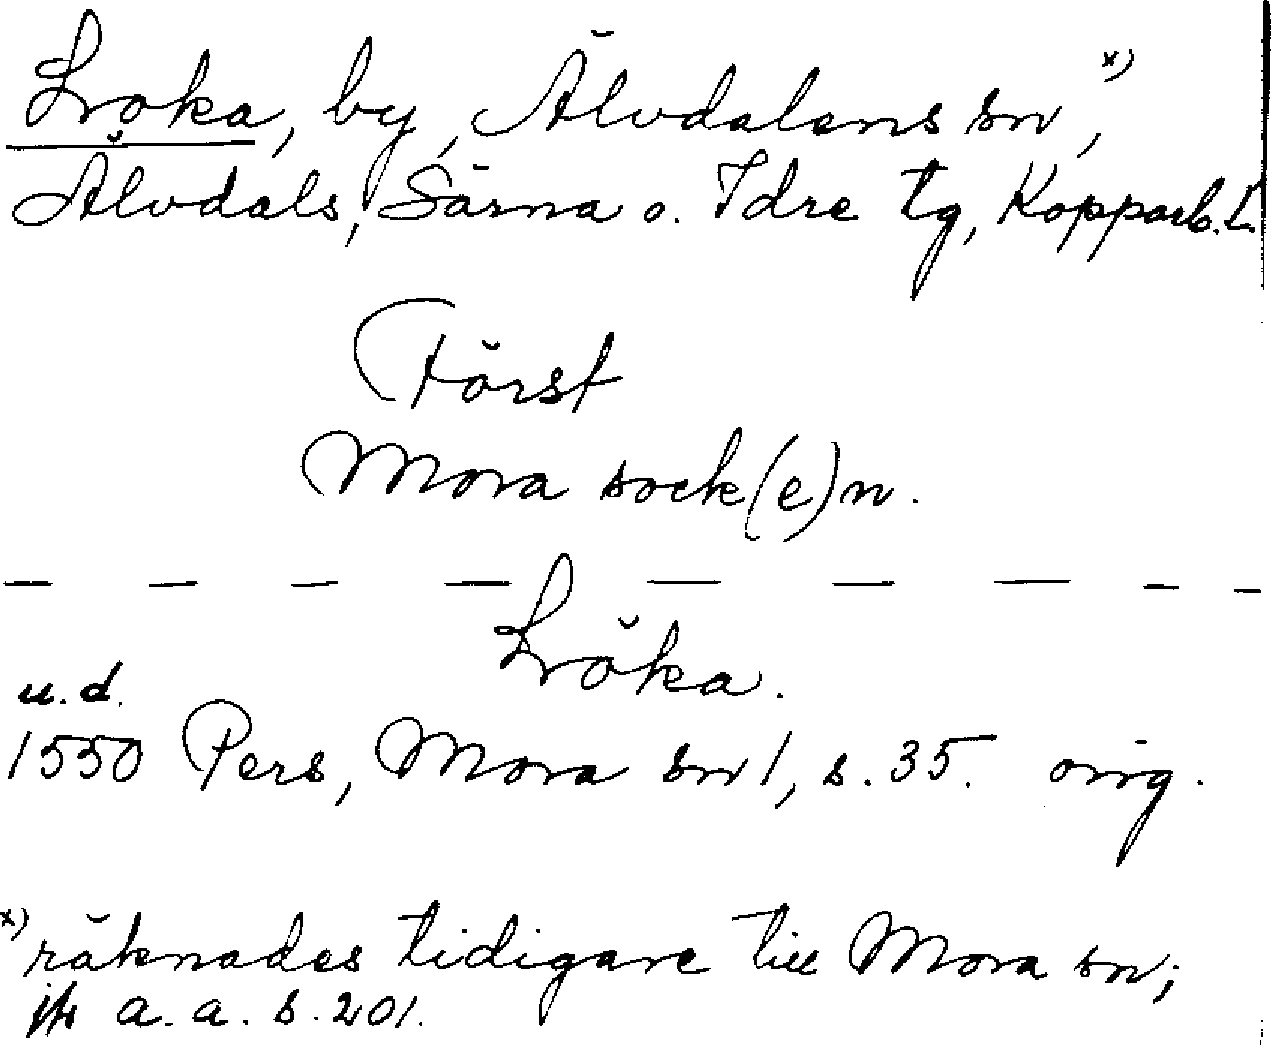 Loka, by, Älvdalens sn, x)
Älvdals, Särna o. Idre tg, Kopparb. L.
Först
Mora sock(e)n.
— — — — — — — — —
Löka.
u. d.
1550 Pers, Mora sn 1, s. 35. orig.
x) räknades tidigare till Mora sn;
jfr a. a. s. 201.